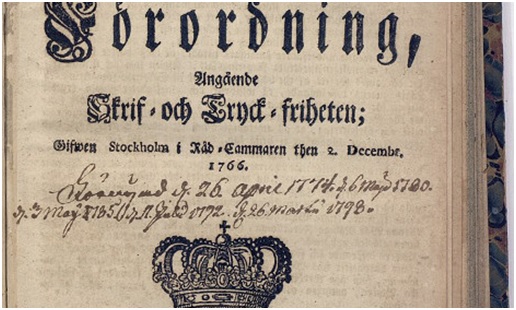 Förordning,
Angående
Skrif-och Tryck-friheten;
Gifwen Stockholm i Råd-Cammaren then 2. Decembr.
1766.
d. 26. april 1774. d. 6 Maji 1780.
d. 3 Maij 1785. d. 11. Julii 1792. d. 26 Martii 1798.